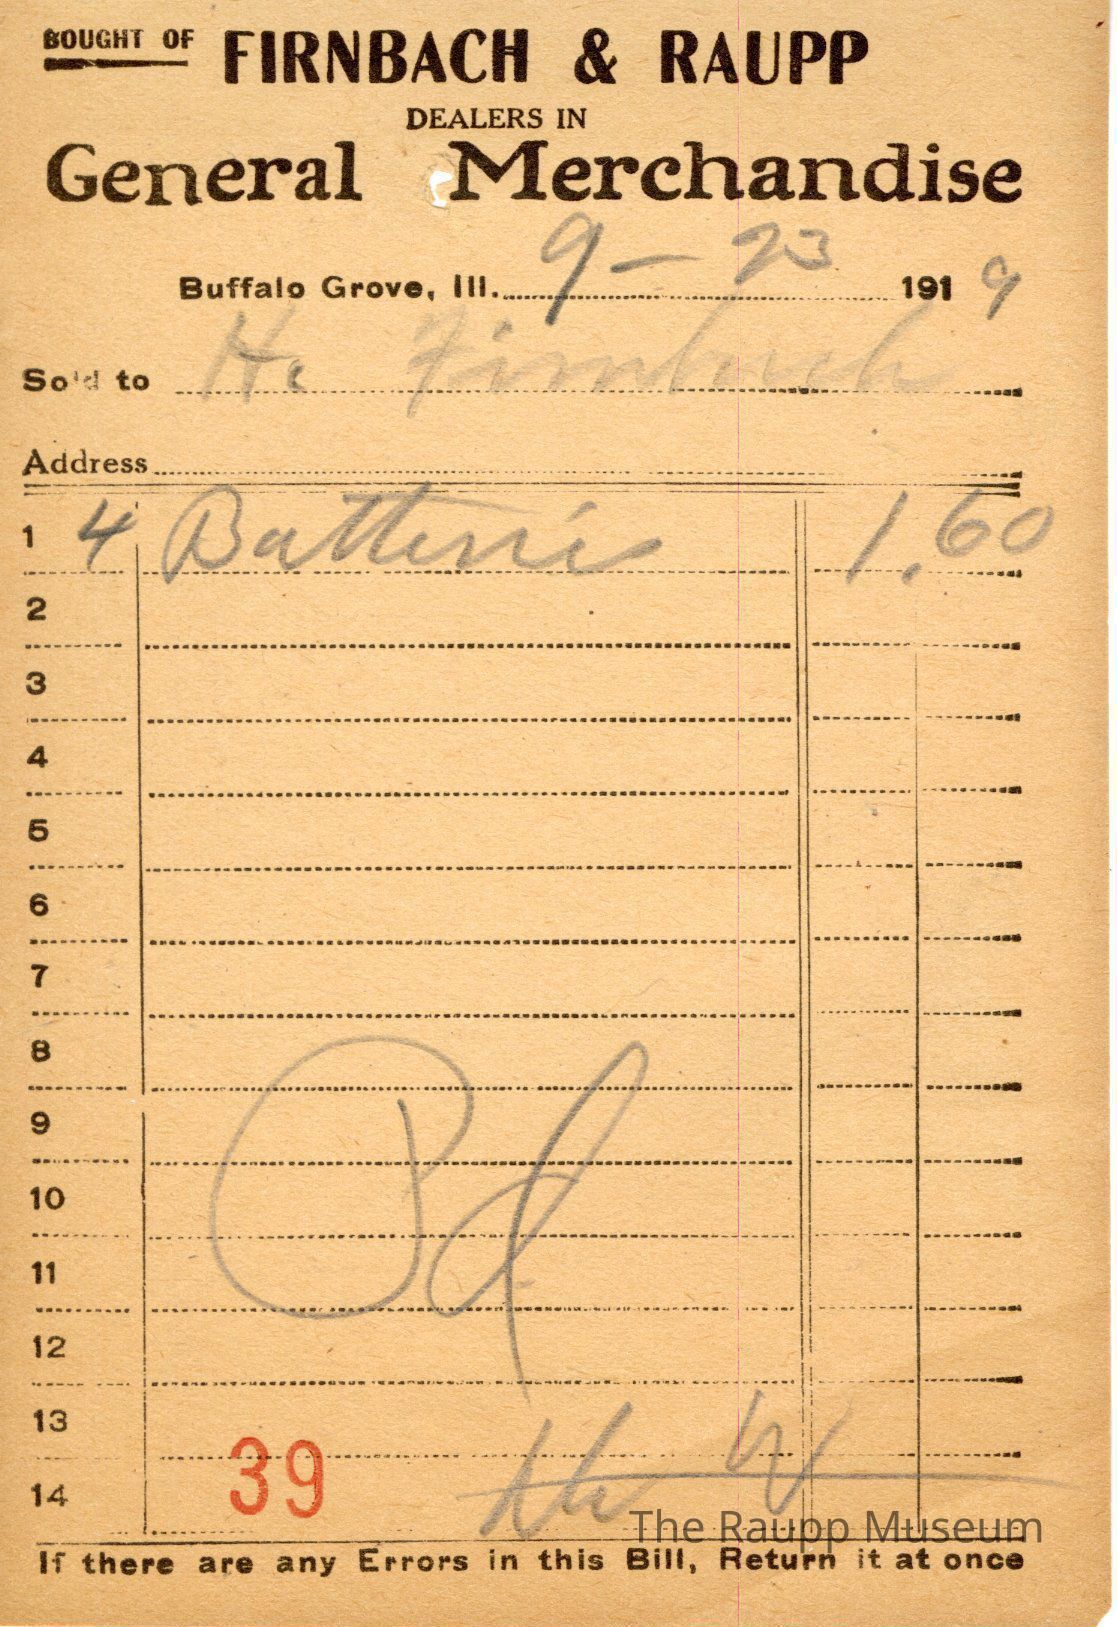 BOUGHT OF FIRNBACH & RAUPP
DEALERS IN
General Merchandise
Buffalo Grove, Ill. 9 - 23 1919
Sold to H. Firnbach
Address
1 4 Batterie 1.60
2
3
4
5
6
7
8
9
10
11
12
13
14 39
The Raupp Museum
If there are any Errors in this Bill, Return it at once